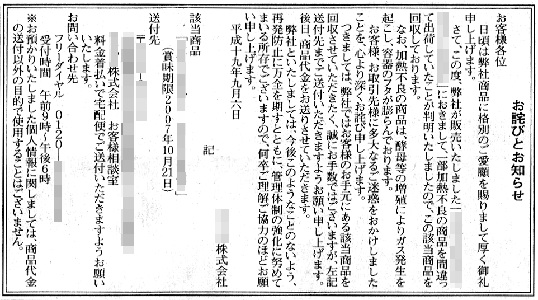 お詫びとお知らせ
お客様各位
日頃は弊社商品に格別のご愛顧を賜りまして厚く御礼
申し上げます。
さて、この度、弊社が販売いたしました「
」におきまして、一部加熱不良の商品を間違っ
て出荷していたことが判明いたしましたので、この該当商品を
回収しております。
なお、加熱不良の商品は、酵母等の増殖によりガス発生を
起こし、容器のフタが膨らんでおります。
お客様、お取引先様に多大なるご迷惑をおかけしました
ことを、心より深くお詫び申し上げます。
つきましては、弊社ではお客様のお手元にある該当商品を
回収させていただきたく、誠にお手数ではございますが、左記
送付先までご送付いただきますようお願い申し上げます。
後日、商品代金をお送りさせていただきます。
弊社といたしましては、今後このようなことのないよう、
再発防止に万全を期すとともに、管理体制の強化に努めて
まいる所存でございますので、何卒ご理解ご協力のほどお願
い申し上げます。
平成十九年九月六日
株式会社
記
該当商品 「 」
(賞味期限2007年10月21日)
送付先
〒
株式会社 お客様相談室
料金着払いで宅配便でご送付いただきますようお願い
いたします。
お問い合わせ先
フリーダイヤル 0120-
受付時間 午前9時~午後6時
※お預かりいたしました個人情報に関しましては、商品代金
の送付以外の目的で使用することはございません。